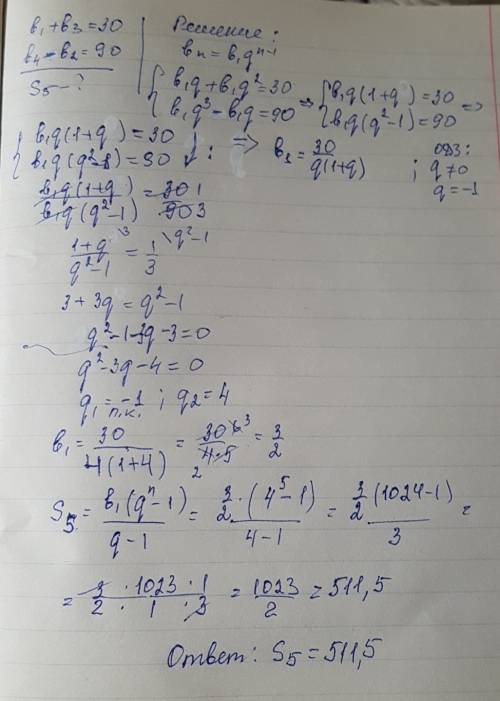 b₁+b₃=30
b₄-b₂=90
S₅-?
Решение:
bₙ=b₁qⁿ⁻¹
{b₁q+b₁q²=30
{b₁q³-b₁q=90
=> {b₁q(1+q)=30
{b₁q(q²-1)=90 =>
{b₁q(1+q)=30
{b₁q(q²-1)=90 ↓: => b₁=30/q(1+q) ; ОДЗ: q≠0
q=-1
b₁q(1+q)/b₁q(q²-1)=30 1/90 3
1+q\³/q²-1=1\q²-1/3
3+3q=q²-1
q²-1-3q-3=0
q²-3q-4=0
q₁=-1 ; q₂=4
п.к.
b₁=30/4(1+4)=30 6 3/4·5 2=3/2
S₅=b₁(qⁿ-1)/q-1=3/2·(4⁵-1)/4-1=3/2(1024-1)/3=
=3·1023·1/2·1·3=1023/2=511,5
Ответ: S₅=511,5